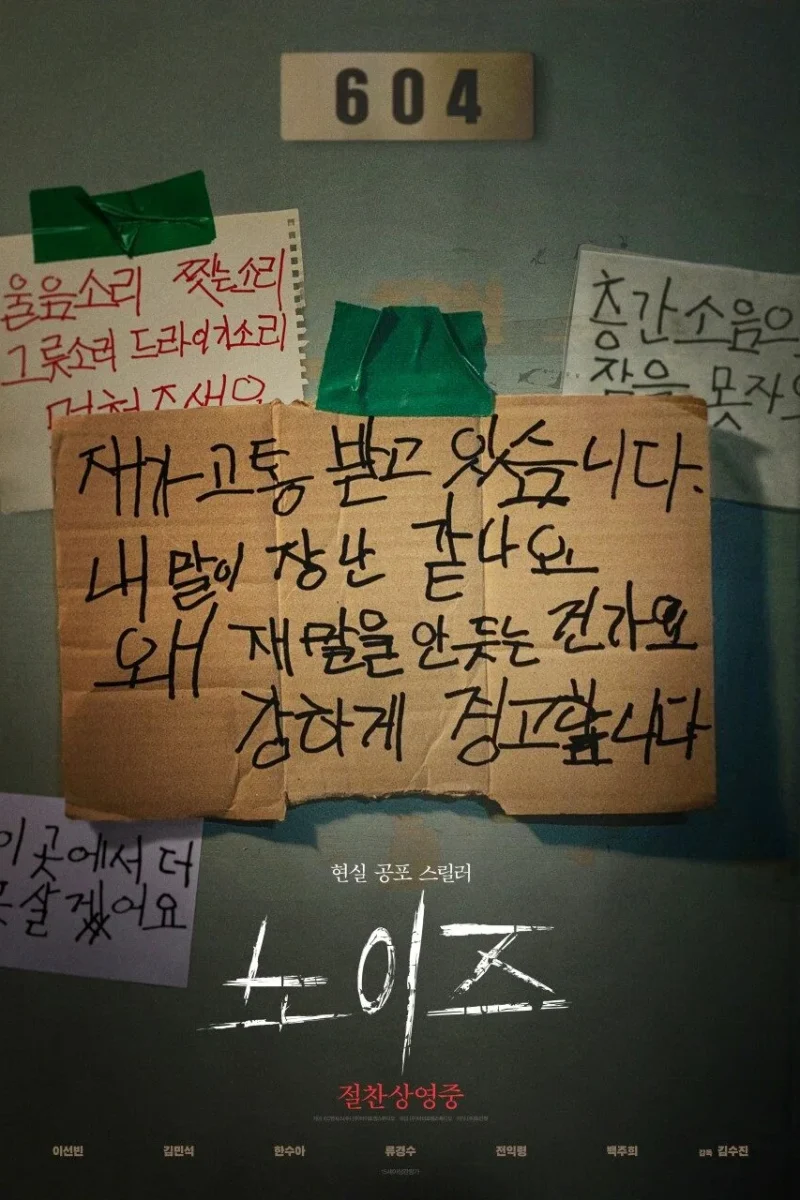 604
울음소리 찢는소리
그릇소리 드라이기소리
멈춰주세요
층간소음으
잠을 못자으
재가 고통 받고 있습니다.
내 말이 장난 같나요
왜 재 말을 안듯는 건가요
강하게 경고합니다
이 곳에서 더
못살겠어요
현실 공포 스릴러
노이즈
절찬상영중
이선빈 김민석 한수아 류경수 전익령 백주희 감독 김수진